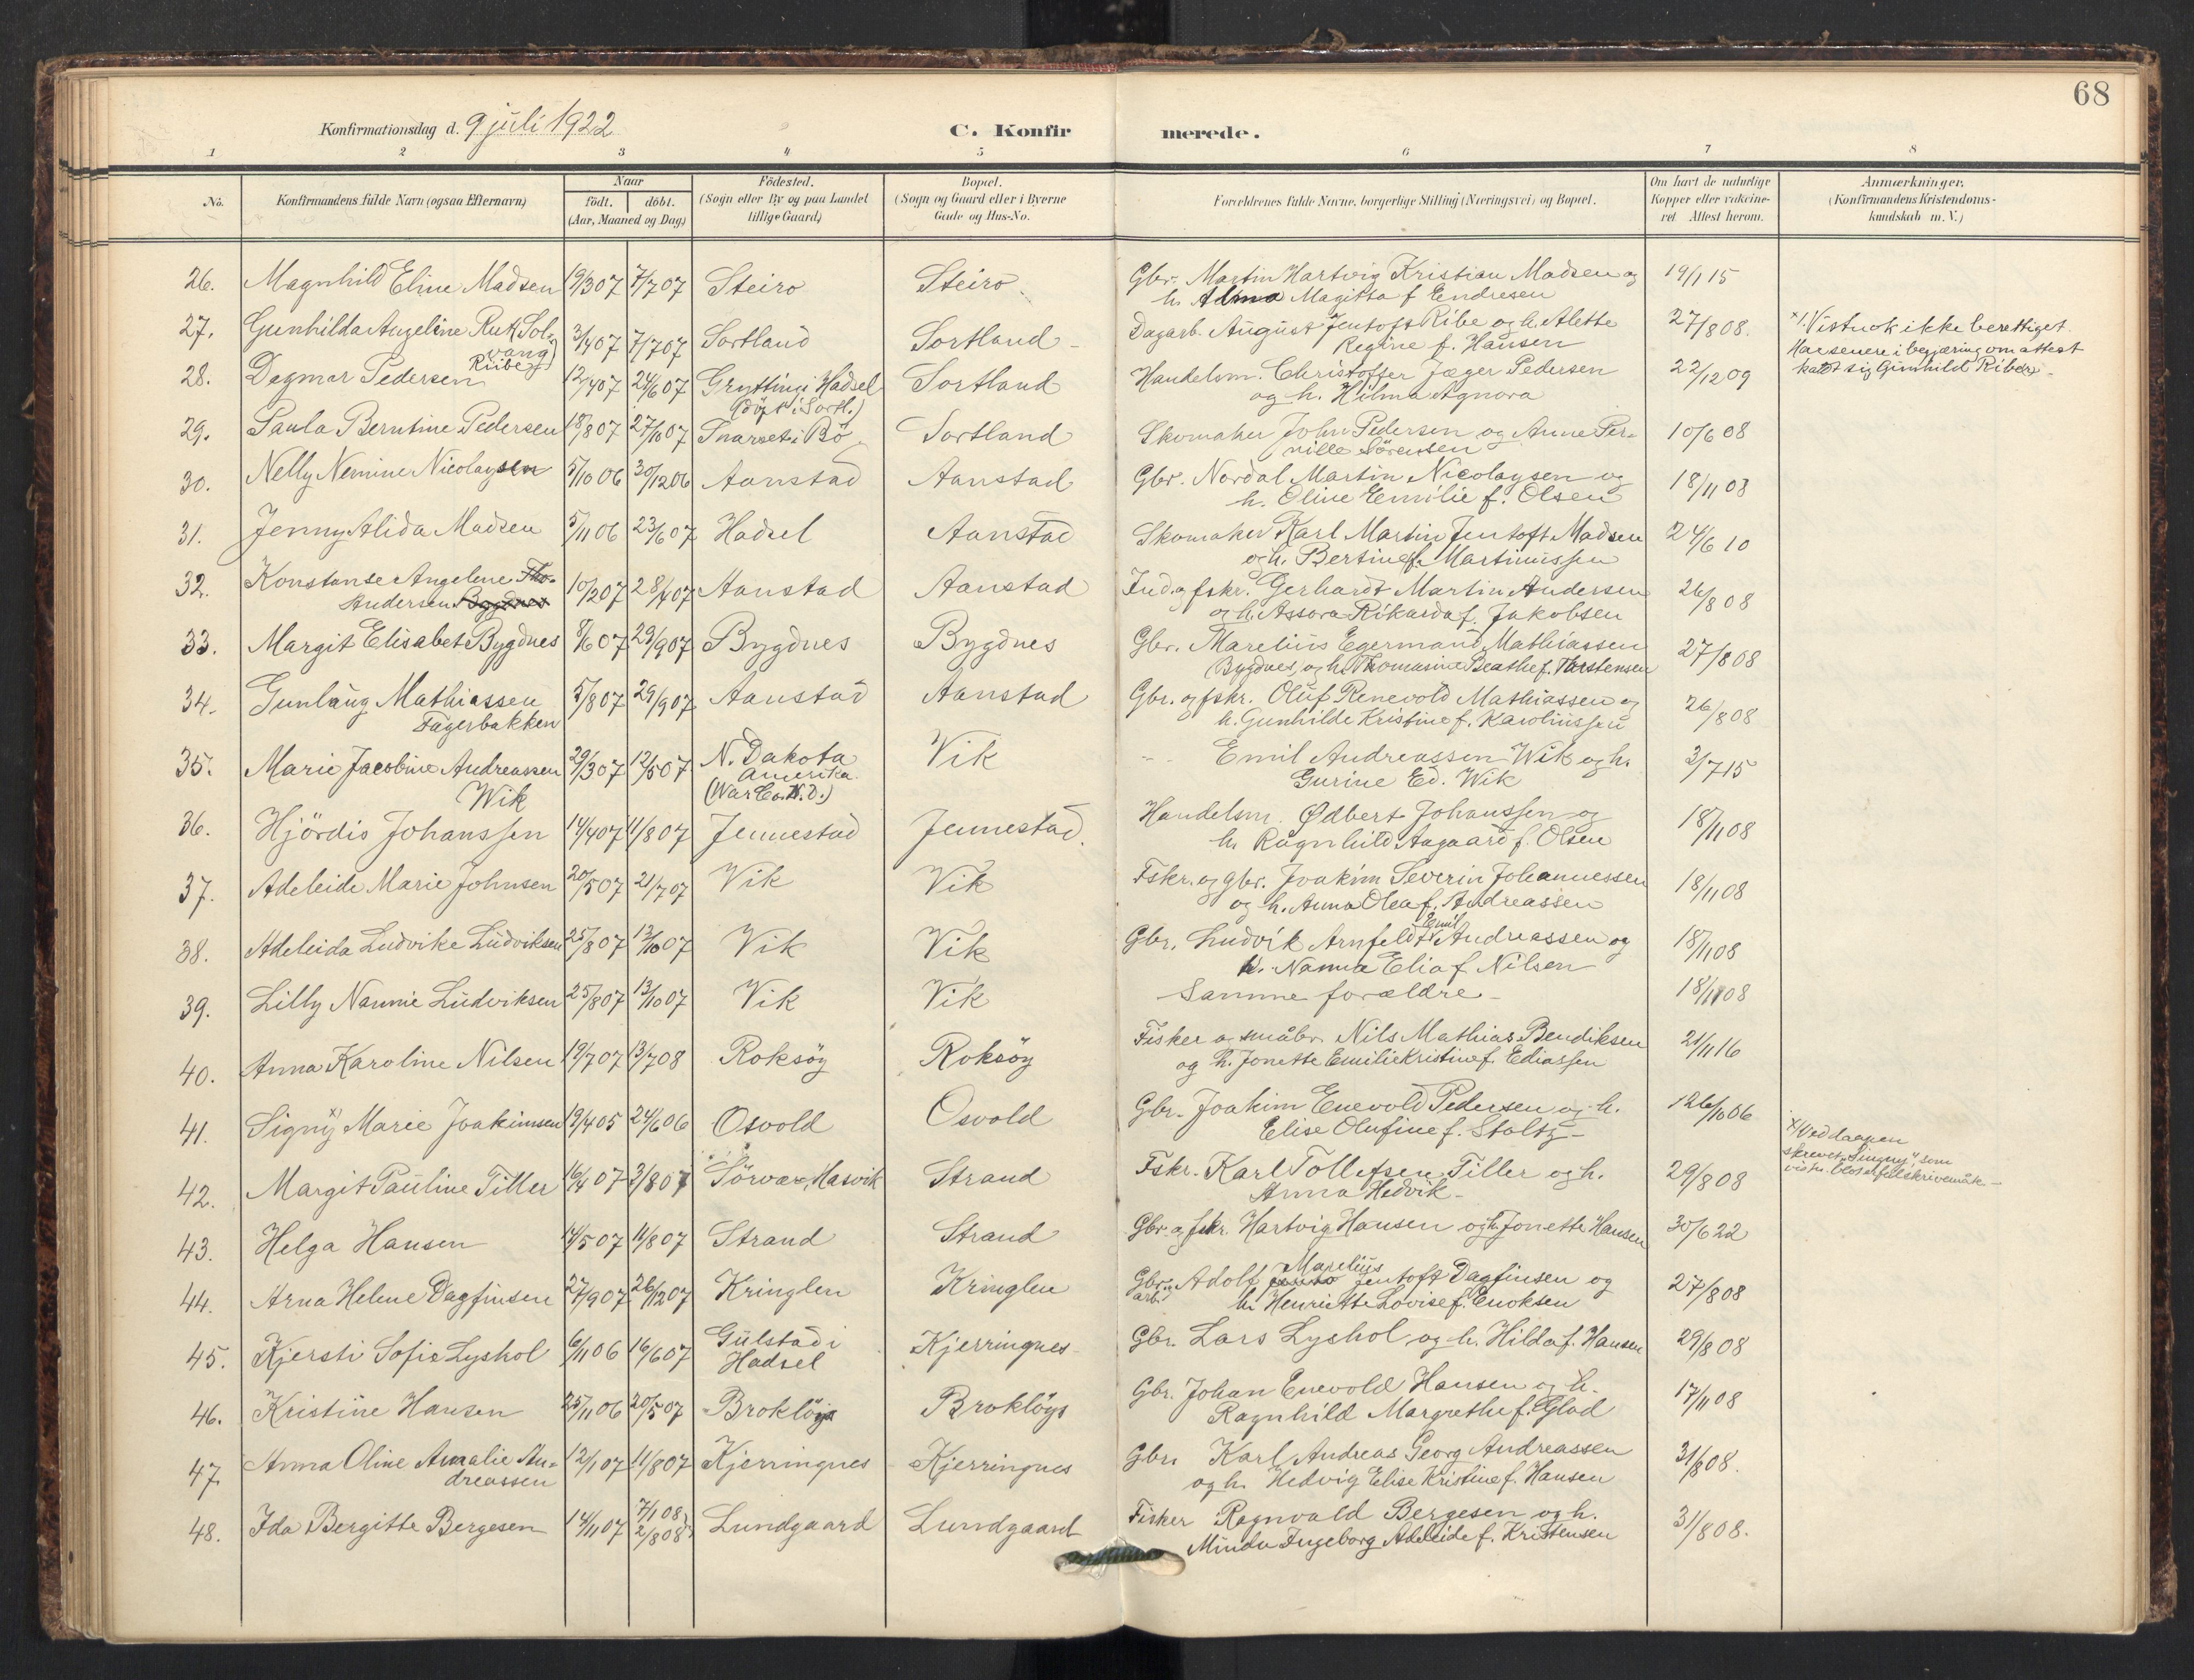 68
Konfirmationsdag d. 9 juli 1922
C. Konfirmerede.
1 2 3 4 5 6 7 8
No. Konfirmandens fulde Navn (ogsaa Efternavn) Naar födt. döbt. (Aar, Maaned og Dag) Födested. (Sogn eller By og paa Landet tillige Gaard) Bopæl. (Sogn og Gaard eller i Byerne Gade og Hus-No. Forældrenes fulde Navne, borgerlige Stilling (Næringsvei) og Bopæl. Om havt de naturlige Kopper eller vakcineret. Attest herom. Anmærkninger. (Konfirmandens Kristendomskundskab m. V.)
26. Magnhild Eline Madsen 19/3 07 7/7 07 Steiro Steiro Gbr. Martin Hartvig Kristian Madsen og 19/1 15
h. Magitta f Endresen
27. Gunhilda Angeline Sol- 3/4 07 7/7 07 Sortland Sortland Dagarb. August Jentoft Ribe og h. Alette 27/8 08. x/. Vistnok ikke berettiget.
vang) Ribe Regine f. Hansen Har senere i begjæring om attest
28. Dagmar Pedersen 12/4 07 24/6 07 Gryttingi Hadsel Sortland Handelsm. Christoffer Jæger Pedersen 22/12 09 kaldt sig Gunhild Ribe
(döpt i Sortl.) og h. Hilma Agnora
29. Paula Berntine Pedersen 18/8 07 27/10 07 Snarset i Bö Sortland Skomaker John Pedersen og Anne Per- 10/6 08
nille Sörensen
30. Nelly Nemine Nicolaysen 5/10 06 30/12 06 Aanstad Aanstad Gbr. Nordal Martin Nicolaysen og 18/11 08
h. Oline Emilie f. Olsen
31. Jenny Alida Madsen 5/11 06 23/6 07 Hadsel Aanstad Skomaker Karl Martin Jentoft Madsen 24/6 10
og h. Bertine f. Martinussen
32. Konstanse Angelene Tho- 10/2 07 28/4 07 Aanstad Aanstad Ind. og fskr. Gerhardt Martin Andersen 26/8 08
Andersen Bygdnes og h. Assora Rikarda f. Jakobsen
33. Margit Elisabet Bygdnes 8/6 07 29/9 07 Bygdnes Bygdnes Gbr. Marelius Egermand Mathiassen 27/8 08
Bygdnes, og h. Thomasine Beathe f. Torstensen
34. Gunlaug Mathiassen 5/8 07 29/9 07 Aanstad Aanstad Gbr. og fskr. Oluf Renevold Mathiassen og 26/8 08
Fagerbakken h. Gunhilde Kristine f. Karolinssen
35. Marie Jacobine Andreassen 29/3 07 12/5 07 N. Dakota Vik - - Emil Andreassen Wik og h. 3/7 15
Wik Amerika Gurine Ed. Wik
(War Co. N.D.)
36. Hjördis Johanssen 14/4 07 11/8 07 Jennestad Jennestad Handelsm. Ødbert Johanssen og 18/11 08
h. Ragnhild Aagaard f. Olsen
37. Adeleide Marie Johnsen 20/5 07 21/7 07 Vik Vik Fskr. og gbr. Joakim Severin Johannessen 18/11 08
og h. Anna Olea f. Andreassen
38. Adeleida Ludvike Ludviksen 25/8 07 13/10 07 Vik Vik Gbr. Ludvik Arnfeldt Emil Andreassen og 18/11 08
h. Nanna Elia f. Nilsen
39. Lilly Nannie Ludviksen 25/8 07 13/10 07 Vik Vik Samme forældre - 18/11 08
40. Anna Karoline Nilsen 19/7 07 13/7 08 Roksöy Roksöy Fisker og småbr. Nils Mathias Bendiksen 21/11 16
og h. Jonette Emilie Kristine f. Ediassen
41. Signy x) Marie Joakimsen 19/4 05 24/6 06 Osvold Osvold Gbr. Joakim Enevold Pedersen og h. 26/10 06
Elise Olufine f. Stoltz - x/ Ved daapen
42. Margit Pauline Tiller 16/4 07 3/8 07 Sörvær, Hasvik Strand Fskr. Karl Tollefsen Tiller og h. 29/8 08 skrevet "Singny", som
Anna Hedvik - vistn. blot er feilskrivemåte. -
43. Helga Hansen 14/5 07 11/8 07 Strand Strand Gbr. og fskr. Hartvig Hansen og h. Jonette Hansen 30/6 22
44. Arna Helene Dagfinsen 27/9 07 26/12 07 Kringlen Kringlen Gbr. og arb. Adolf Marelius Jentoft Dagfinsen og 27/8 08
h. Henriette Lovise f. Enoksen
45. Kjersti Sofie Lyshol 6/11 06 16/6 07 Gulstad i Kjerringnes Gbr. Lars Lyshol og h. Hilda f. Hansen 29/8 08
Hadsel
46. Kristine Hansen 25/11 06 20/5 07 Broklöys Broklöys Gbr. Johan Enevold Hansen og h. 17/11 08
Ragnhild Margrethe f. Glad
47. Anna Oline Amalie An- 12/1 07 11/8 07 Kjerringnes Kjerringnes Gbr. Karl Andreas Georg Andreassen 31/8 08.
dreassen og h. Hedvig Elise Kristine f. Hansen
48. Ida Bergitte Bergesen 14/11 07 7/1 08) 2/8 08) Lundgaard Lundgaard Fisker Ragnvald Bergesen og h. 31/8 08.
Minda Ingeborg Adeleide f. Kristensen